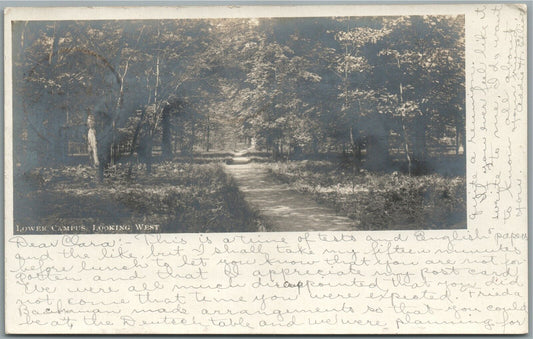 LOWER CAMPUS, LOOKING WEST
Dear Clara:- This is a time of tests and English papers
and the like, but I shall take my fifteen minutes
before lunch to let you know that you are not for-
gotten and that I appreciate my post card.
We were all much disappointed that you did
not come that time you were expected. Frieda
Bachman made arrangements so that you could
be at the Deutsch table and we were planning for
it
If you ever feel like
write to me, I do want
to see you
you.